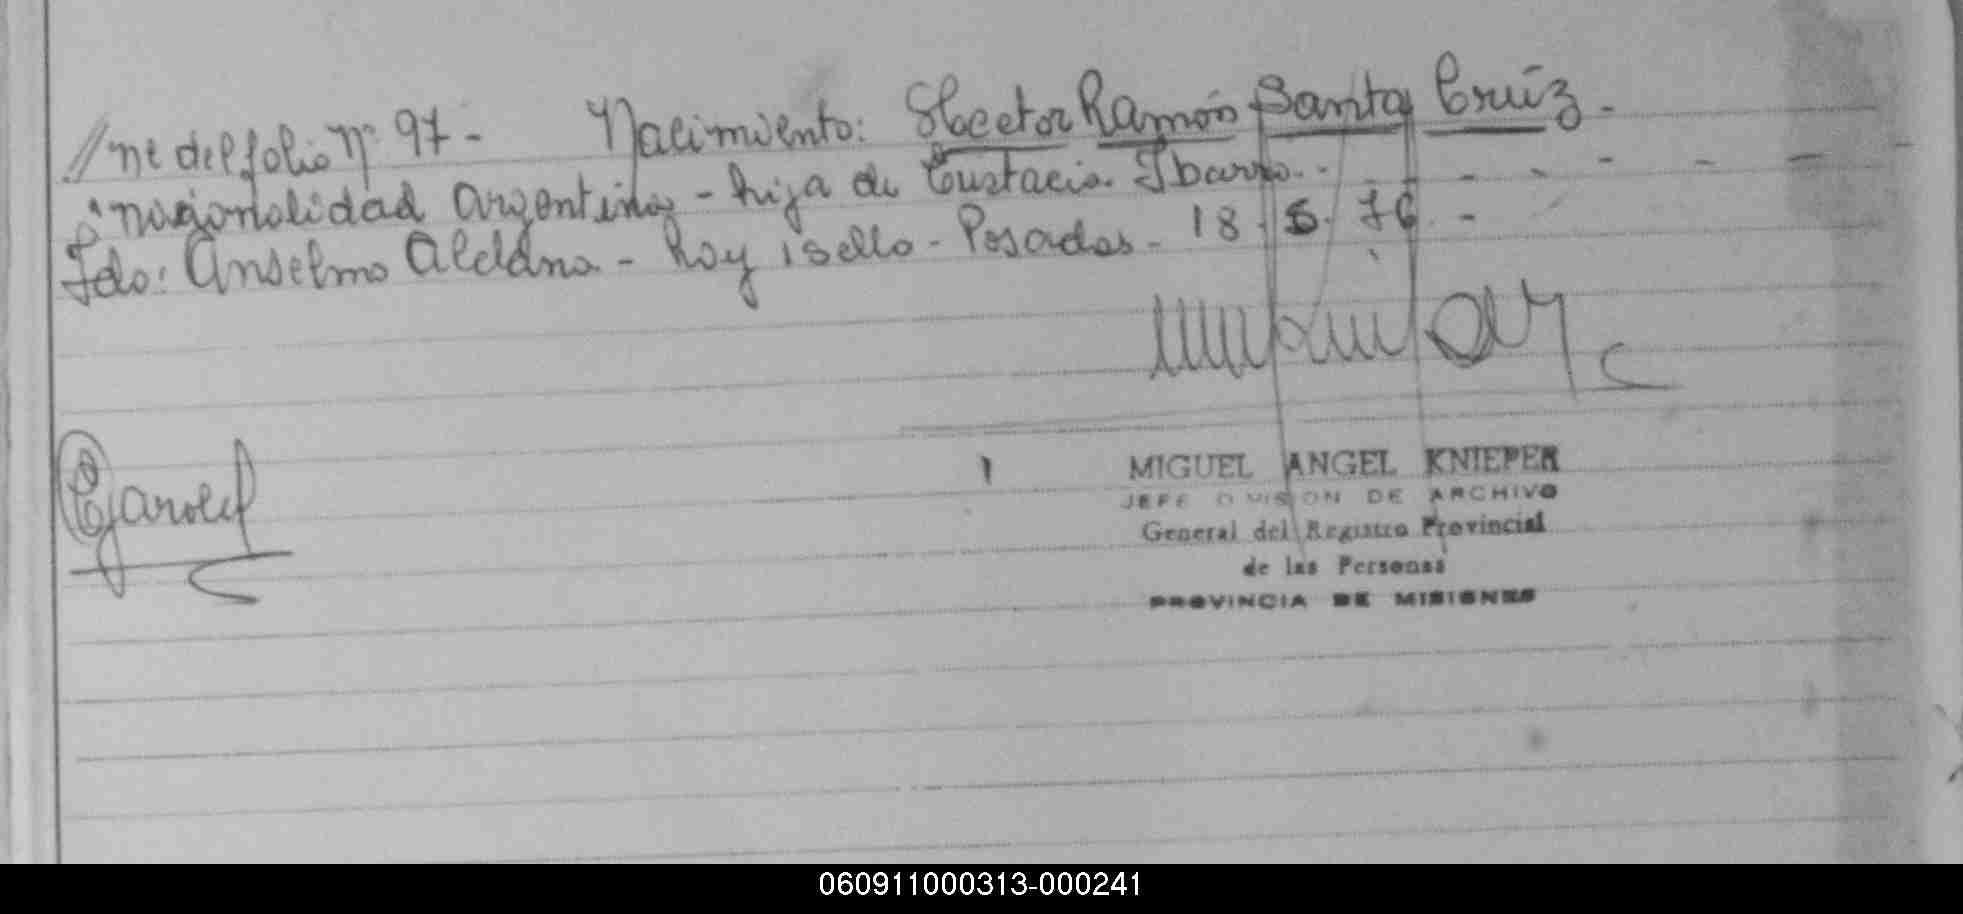 //ne del folio Nº 97 - Nacimiento: Hector Ramón Santa Cruz.
nacionalidad argentina - hija de Eustacia Ibarra. - - - - - - - -
Fdo: Anselmo Aldana - hay sello - Posadas - 18. 5. 76. -
MIGUEL ANGEL KNIEPER
JEFE DIVISION DE ARCHIVO
General del Registro Provincial
de las Personas
PROVINCIA DE MISIONES
060911000313-000241